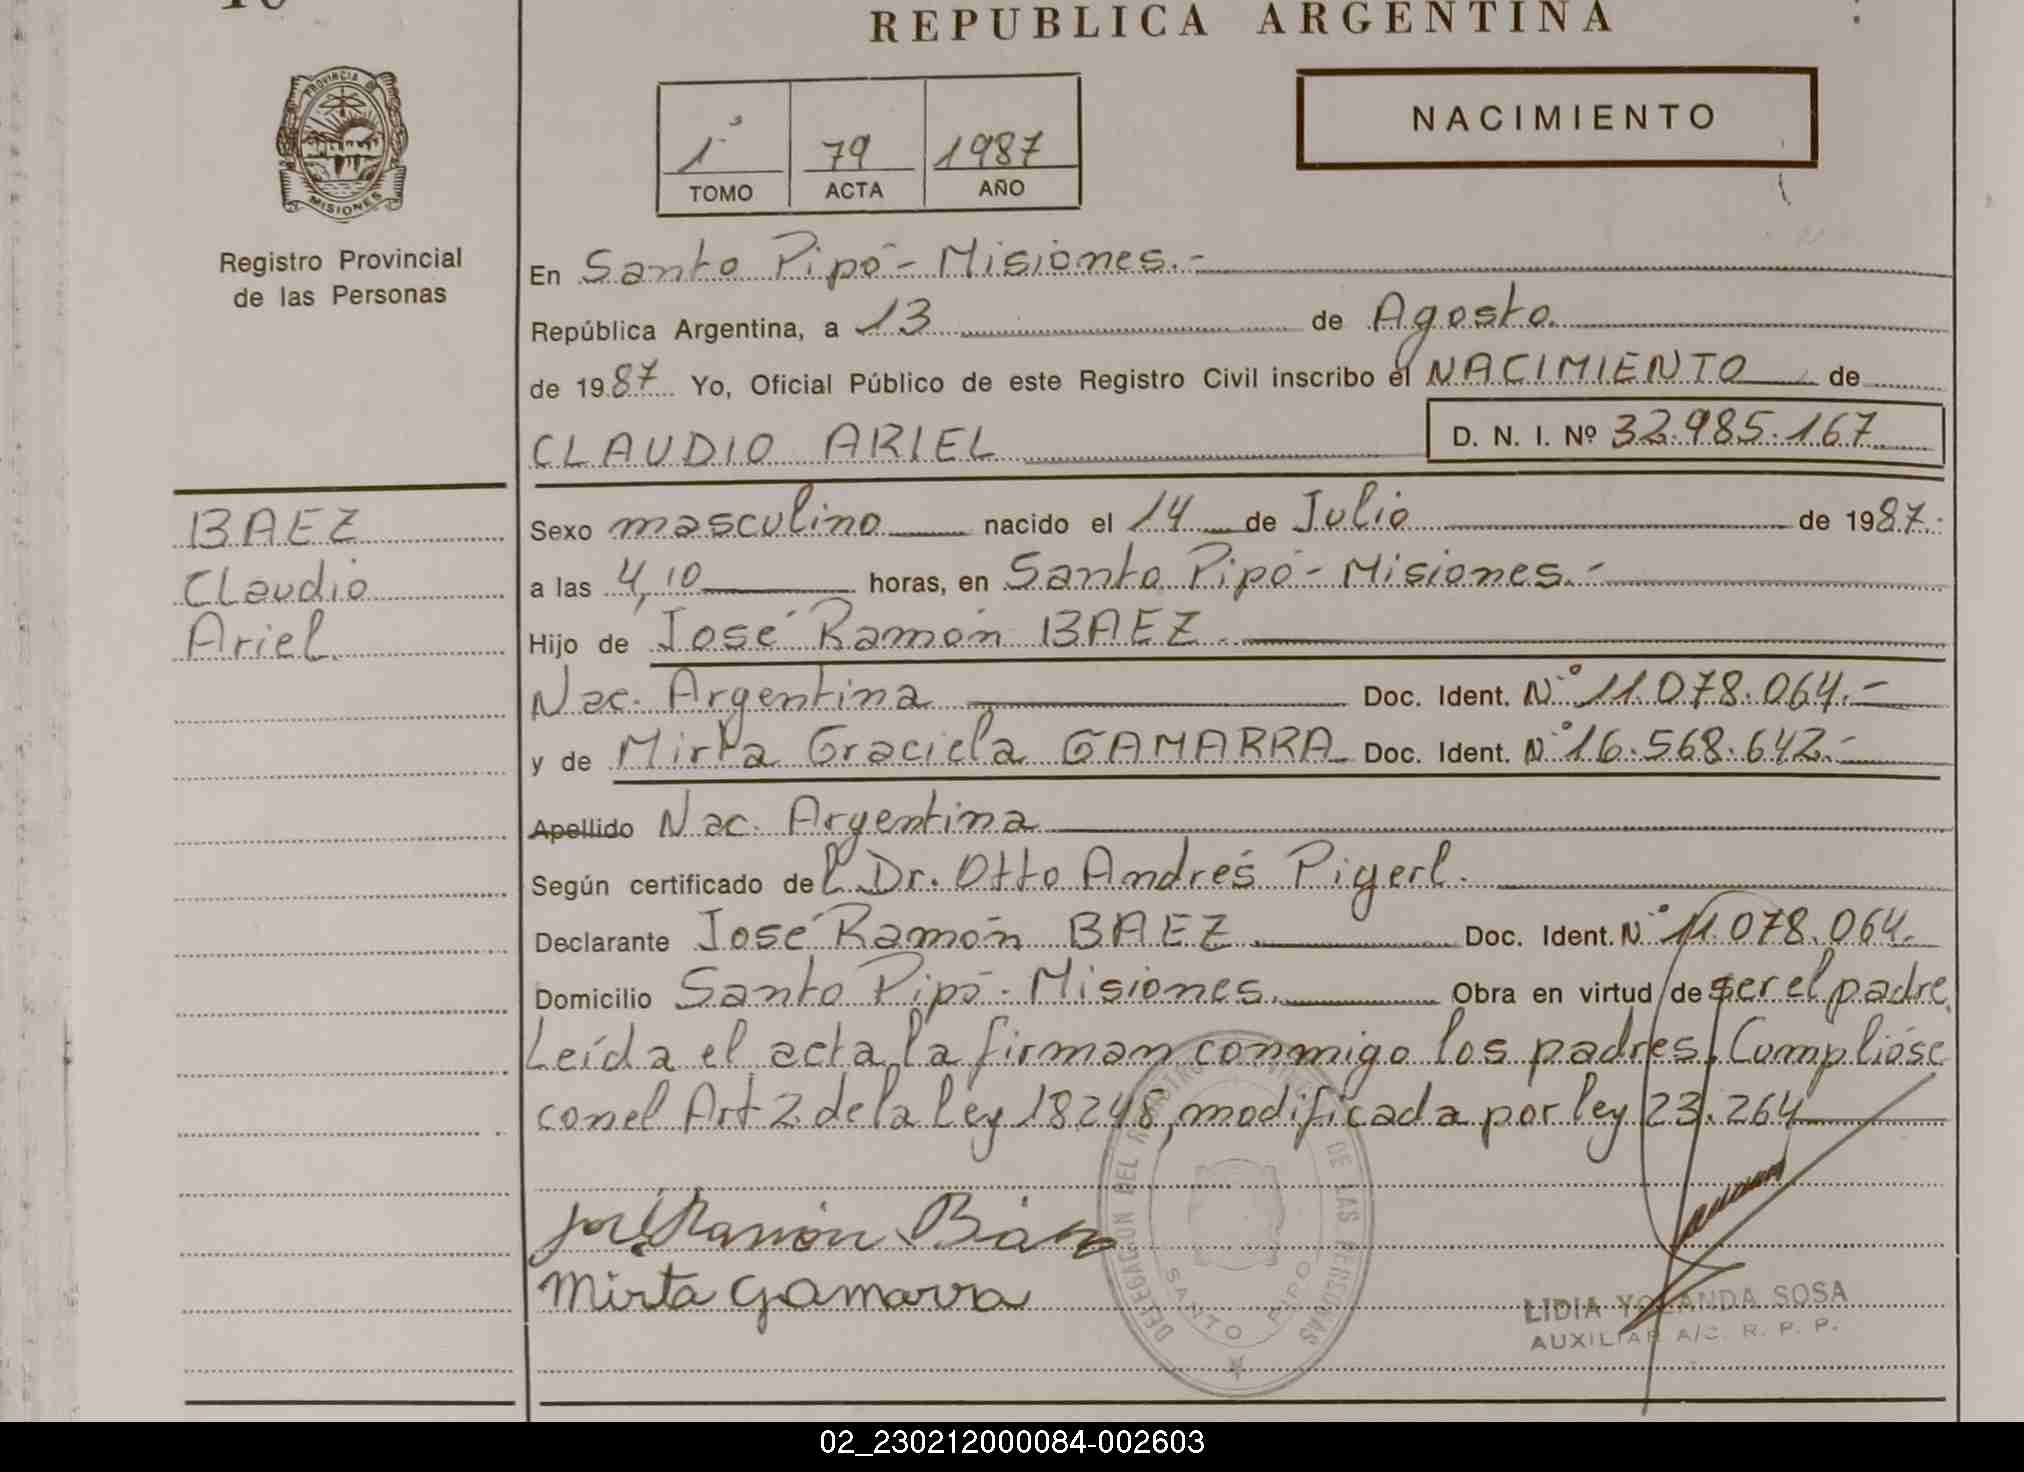 REPUBLICA ARGENTINA
PROVINCIA DE
MISIONES
Registro Provincial
de las Personas
1º 79 1987
TOMO ACTA AÑO
NACIMIENTO
En Santo Pipó - Misiones.-
República Argentina, a 13 de Agosto
de 1987. Yo, Oficial Público de este Registro Civil inscribo el NACIMIENTO de
CLAUDIO ARIEL D. N. I. Nº 32.985.167
BAEZ
Claudio
Ariel.
Sexo masculino nacido el 14 de Julio de 1987.
a las 4,10 horas, en Santo Pipó - Misiones.-
Hijo de José Ramón BAEZ.
Nac. Argentina Doc. Ident. Nº 11.078.064.-
y de Mirta Graciela GAMARRA Doc. Ident. Nº 16.568.642.-
Apellido Nac. Argentina
Según certificado del Dr. Otto Andrés Pigerl.
Declarante José Ramón BAEZ Doc. Ident. Nº 11.078.064.
Domicilio Santo Pipó - Misiones. Obra en virtud de ser el padre.
Leída el acta, la firman conmigo los padres. Cumplióse
con el Art 2 de la Ley 18248, modificada por ley 23.264
José Ramón Báez
Mirta Gamarra
DELEGACION DEL REGISTRO DE LAS PERSONAS
SANTO PIPO
LIDIA YOLANDA SOSA
AUXILIAR A/C. R. P. P.
02_230212000084-002603